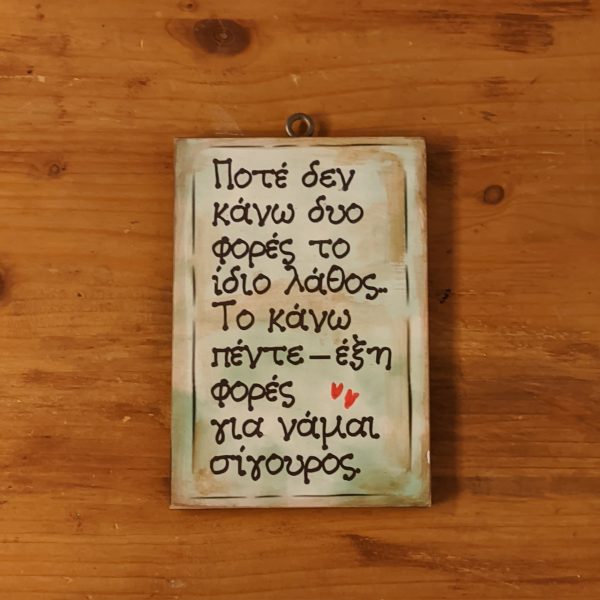 Ποτέ δεν
κάνω δυο
φορές το
ίδιο λάθος..
Το κάνω
πέντε-έξη
φορές
για νάμαι
σίγουρος.